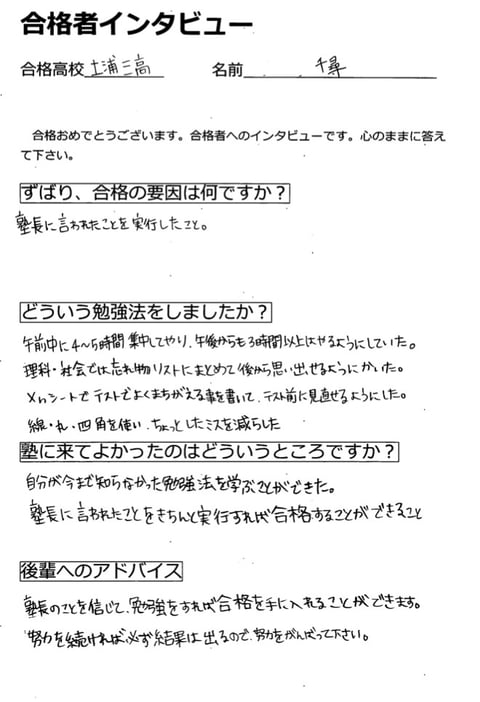 合格者インタビュー
合格高校 土浦三高 名前 千尋
合格おめでとうございます。合格者へのインタビューです。心のままに答え
て下さい。
ずばり、合格の要因は何ですか？
塾長に言われたことを実行したこと。
どういう勉強法をしましたか？
午前中に4～5時間集中してやり、午後からも3時間以上はやるようにしていた。
理科・社会では忘れ物リストにまとめて後から思い出せるようにかいた。
シートでテストでよくまちがえる事を書いて、テスト前に見直せるようにした。
線・丸・四角を使い、ちょっとしたミスを減らした
塾に来てよかったのはどういうところですか？
自分が今まで知らなかった勉強法を学ぶことができた。
塾長に言われたことをきちんと実行すれば合格することができること
後輩へのアドバイス
塾長のことを信じて、勉強をすれば合格を手に入れることができます。
努力を続ければ必ず結果は出るので、努力をがんばって下さい。